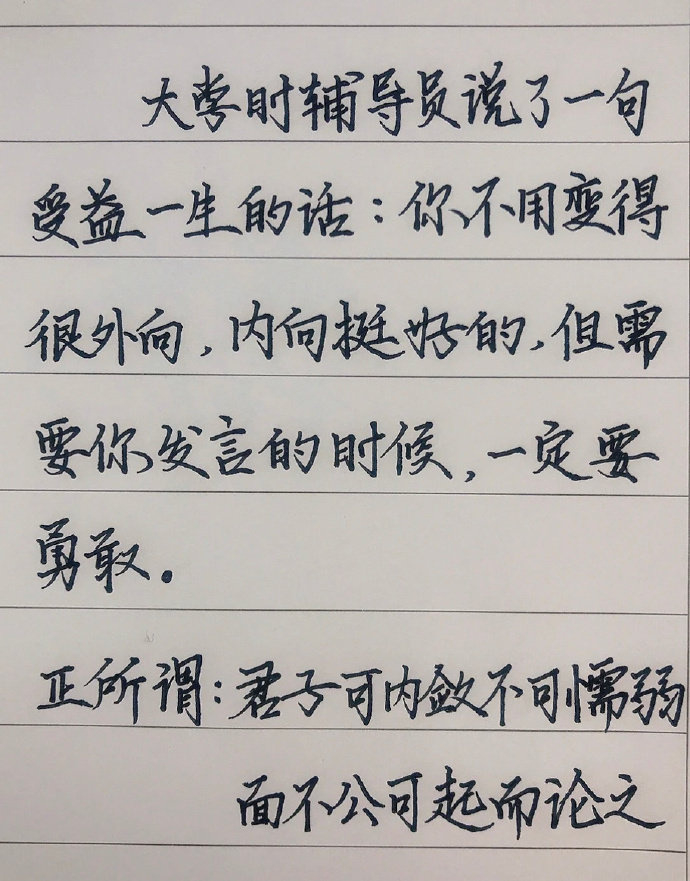 大学时辅导员说了一句
受益一生的话：你不用变得
很外向，内向挺好的，但需
要你发言的时候，一定要
勇敢。
正所谓：君子可内敛不可懦弱
面不公可起而论之